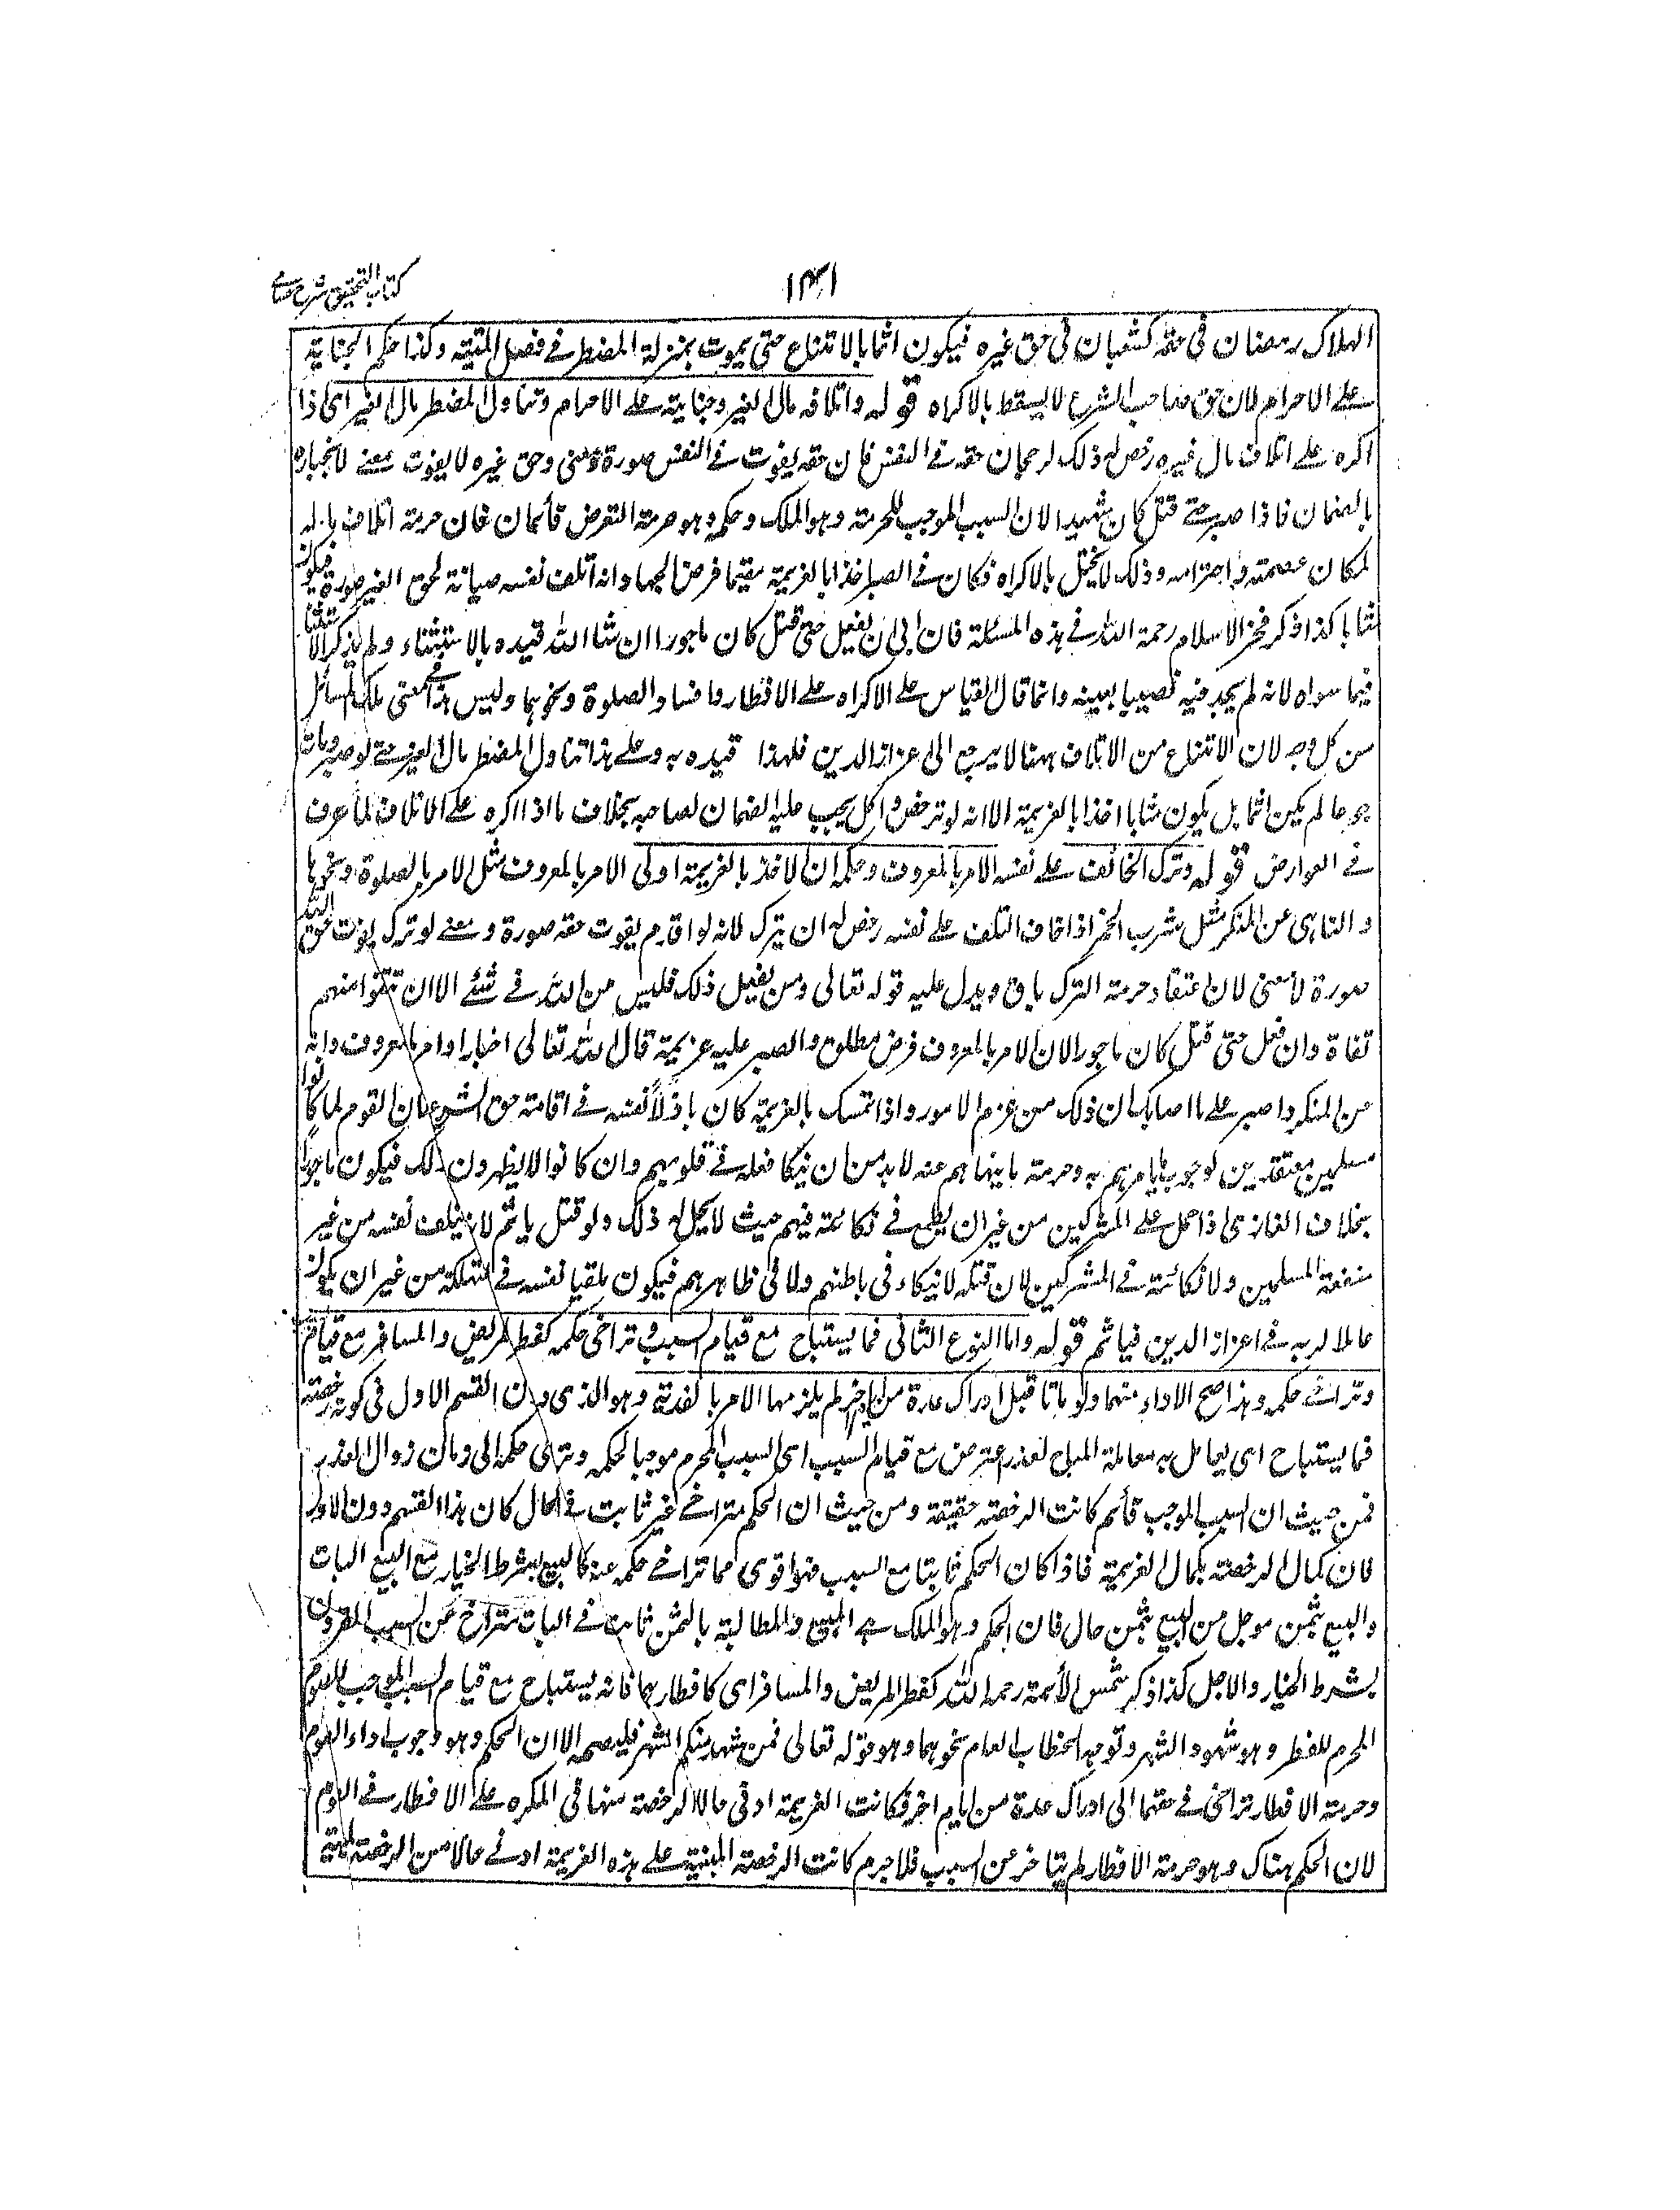 كتاب التحقيق شرح حسامى
۱۴۱
الهلاك رمضان فى حقه كشعبان فى حق غيره فيكون اثما بالامتناع حتى يموت بمنزلة المضطر فے فصل الميتة وكذا حكم الجناية
علے الاحرام لان حق صاحب الشرع لا يسقط بالاكراه قوله واتلافه مال الغير وجناية علے الاحرام وتناول المضطر مال الغير اى اذا
اكره علے اتلاف مال غيره رخص له ذلك لرجحان حقه فے النفس فان حقه يفوت فے النفس صورة ومعنى وحق غيره لا يفوت معنے لانجباره
بالضمان فاذا صبر حتے قتل كان شهيدا لان السبب الموجب للحرمة وهو الملك وحكمه وهو حرمة التعرض قائمان فان حرمة اتلاف ماله
لمكان عصمته واحترامه وذلك لا يختل بالاكراه فكان فے الصبر اخذا بالعزيمة مقيما فرض الجهاد لانه اتلف نفسه صيانة لحق الغير صورة فيكون
مثابا كذا ذكر فخر الاسلام رحمة الله فے هذه المسئلة فان ابى ان يفعل حتى قتل كان ماجورا ان شاء الله قيده بالاستثناء ولم يذكر الاستثناء
فيما سواه لانه لم يجد فيه نصا بعينه وانما قال القياس علے الاكراه علے الافطار وافساد الصلوة ونحوهما وليس هذا فے معنى تلك المسائل
من كل وجه لان الامتناع من الاتلاف ههنا لا يرجع الى اعزاز الدين فلهذا قيده به وعلے هذا تناول المضطر مال الغير حتے لو صبر ومات
جوعا لم يكن اثما بل يكون مثابا اخذا بالعزيمة الا انه لو ترخص واكل يجب عليه الضمان لصاحبه بخلاف ما اذا اكره علے الاتلاف لما عرف
فے العوارض قوله وترك الخائف علے نفسه الامر بالمعروف وحكمه ان الاخذ بالعزيمة اولى الامر بالمعروف مثل الامر بالصلوة ونحوها
والناهى عن المنكر مثل شرب الخمر اذا خاف التلف علے نفسه رخص له ان يترك لانه لو اقدم يفوت حقه صورة ومعنے ولو ترك يفوت حق الله
صورة لا معنى لان اعتقاد حرمة الترك باق ويدل عليه قوله تعالى ومن يفعل ذلك فليس من الله فے شئے الا ان تتقوا منهم
تقاة وان فعل حتى قتل كان ماجورا لان الامر بالمعروف فرض مطلق والصبر عليه عزيمة قال الله تعالى اخبارا وامر بالمعروف وانه
عن المنكر واصبر علے ما اصابك ان ذلك من عزم الامور واذا تمسك بالعزيمة كان باذلا نفسه فے اقامة حق الشرع لان القوم لما كانوا
مسلمين معتقدين لوجوب ما يامرهم به وحرمة ما ينهاهم عنه لا بد من ان ينكا فعله فے قلوبهم وان كانوا لا يظهرون ذلك فيكون ماجورا
بخلاف الغازى اذا حمل علے المشركين من غير ان يطمع فے نكائة فيهم حيث لا يحل له ذلك ولو قتل ياثم لانه يتلف نفسه من غير
منفعة المسلمين ولا نكائة فے المشركين لان قتله لا ينكاء فى باطنهم ولا فى ظاهرهم فيكون ملقيا نفسه فے التهلكة من غير ان يكون
عاملا لربه فے اعزاز الدين فياثم قوله واما النوع الثانى فما يستباح مع قيام السبب وتراخى حكمه كفطر المريض والمسافر مع قيام
وتراخے حكمه ولهذا صح الاداء منهما ولو ماتا قبل ادراك عدة من ايام اخر لم يلزمهما الامر بالفدية وهو الذى دون القسم الاول فى كونه رخصة
فما يستباح اى يعامل به معاملة المباح لعذر اعترض مع قيام السبب اى السبب المحرم موجبا لحكمه وتراخى حكمه الى زمان زوال العذر
فمن حيث ان السبب الموجب قائم كانت الرخصة حقيقة ومن حيث ان الحكم متراخے غير ثابت فے الحال كان هذا القسم دون الاول
فان كمال الرخصة بكمال العزيمة فاذا كان الحكم ثابتا مع السبب فهو اقوى مما تراخے حكمه عنه كالبيع بشرط الخيار مع البيع البات
والبيع بثمن موجل من البيع بثمن حال فان الحكم وهو الملك فے المبيع والمطالبة بالثمن ثابت فے البات متراخ عن السبب المقرون
بشرط الخيار والاجل كذا ذكر شمس الأئمة رحمه الله كفطر المريض والمسافر اى كافطارهما فانه يستباح مع قيام السبب الموجب للصوم
المحرم للفطر وهو شهود الشهر وتوجه الخطاب العام نحوهما وهو قوله تعالى فمن شهد منكم الشهر فليصمه الا ان الحكم وهو وجوب اداء الصوم
وحرمة الافطار تراخى فے حقهما الى ادراك عدة من ايام اخر فكانت العزيمة ادنى حالا لرخصة منها فى المكره علے الافطار فے الصوم
لان الحكم هناك وهو حرمة الافطار لم يتاخر عن السبب فلا جرم كانت الرخصة المبنية علے هذه العزيمة ادنے حالا من الرخصة المبنية